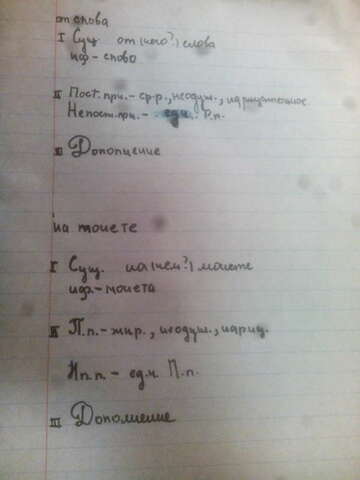 от слова
I Сущ. от (чего?) слова
н.ф.- слово
II Пост. при.- ср.р., неодуш., нарицательное.
Непост. при.- ед.ч. Р.п.
III Дополнение
на монете
I Сущ. на (чем?) монете
н.ф.- монета
II П.п.- жир., неодуш., нариц.
Нп.п.- ед.ч. П.п.
III Дополнение